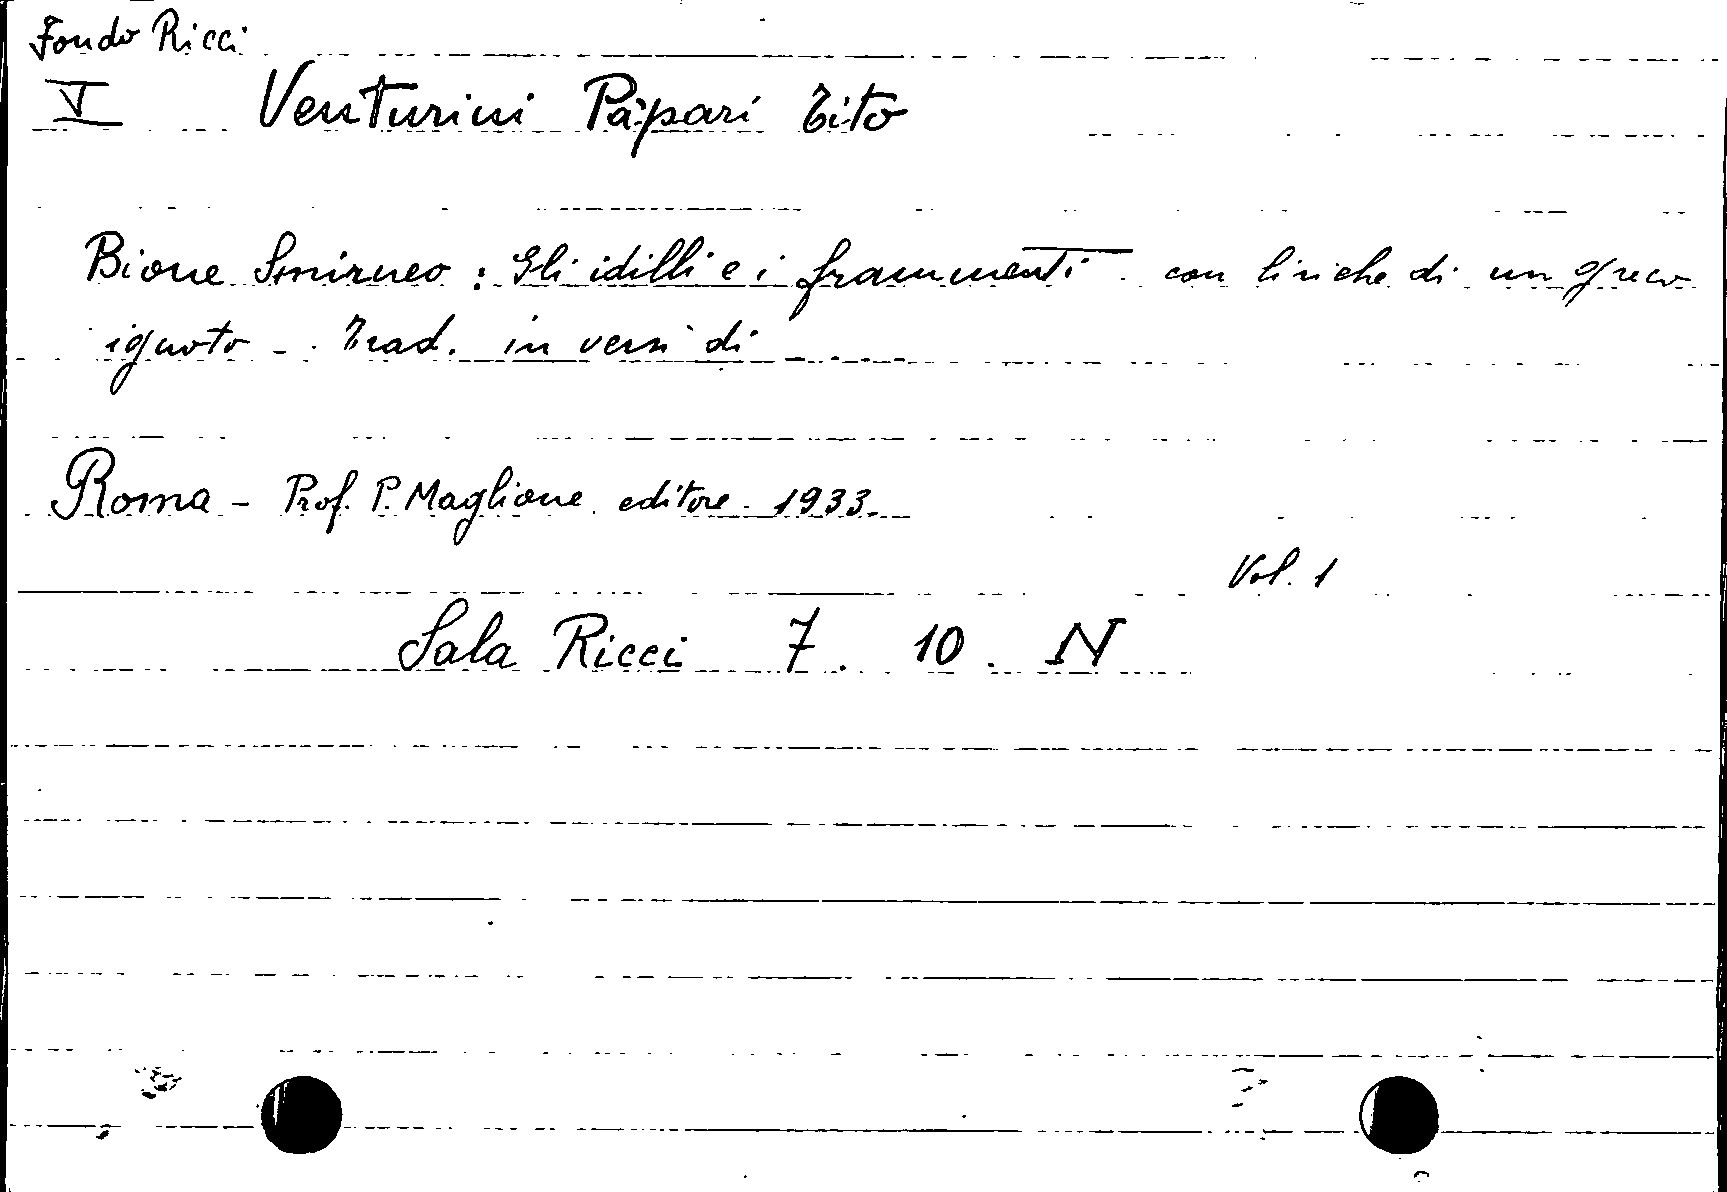 Fondo Ricci
V Venturini Papari Tito
Bione Smirneo: Gli idilli e i frammenti con liriche di un greco
ignoto - Trad. in versi di - . - . -
Roma - Prof. P. Maglione editore 1933.
Vol. 1
Sala Ricci 7. 10. N